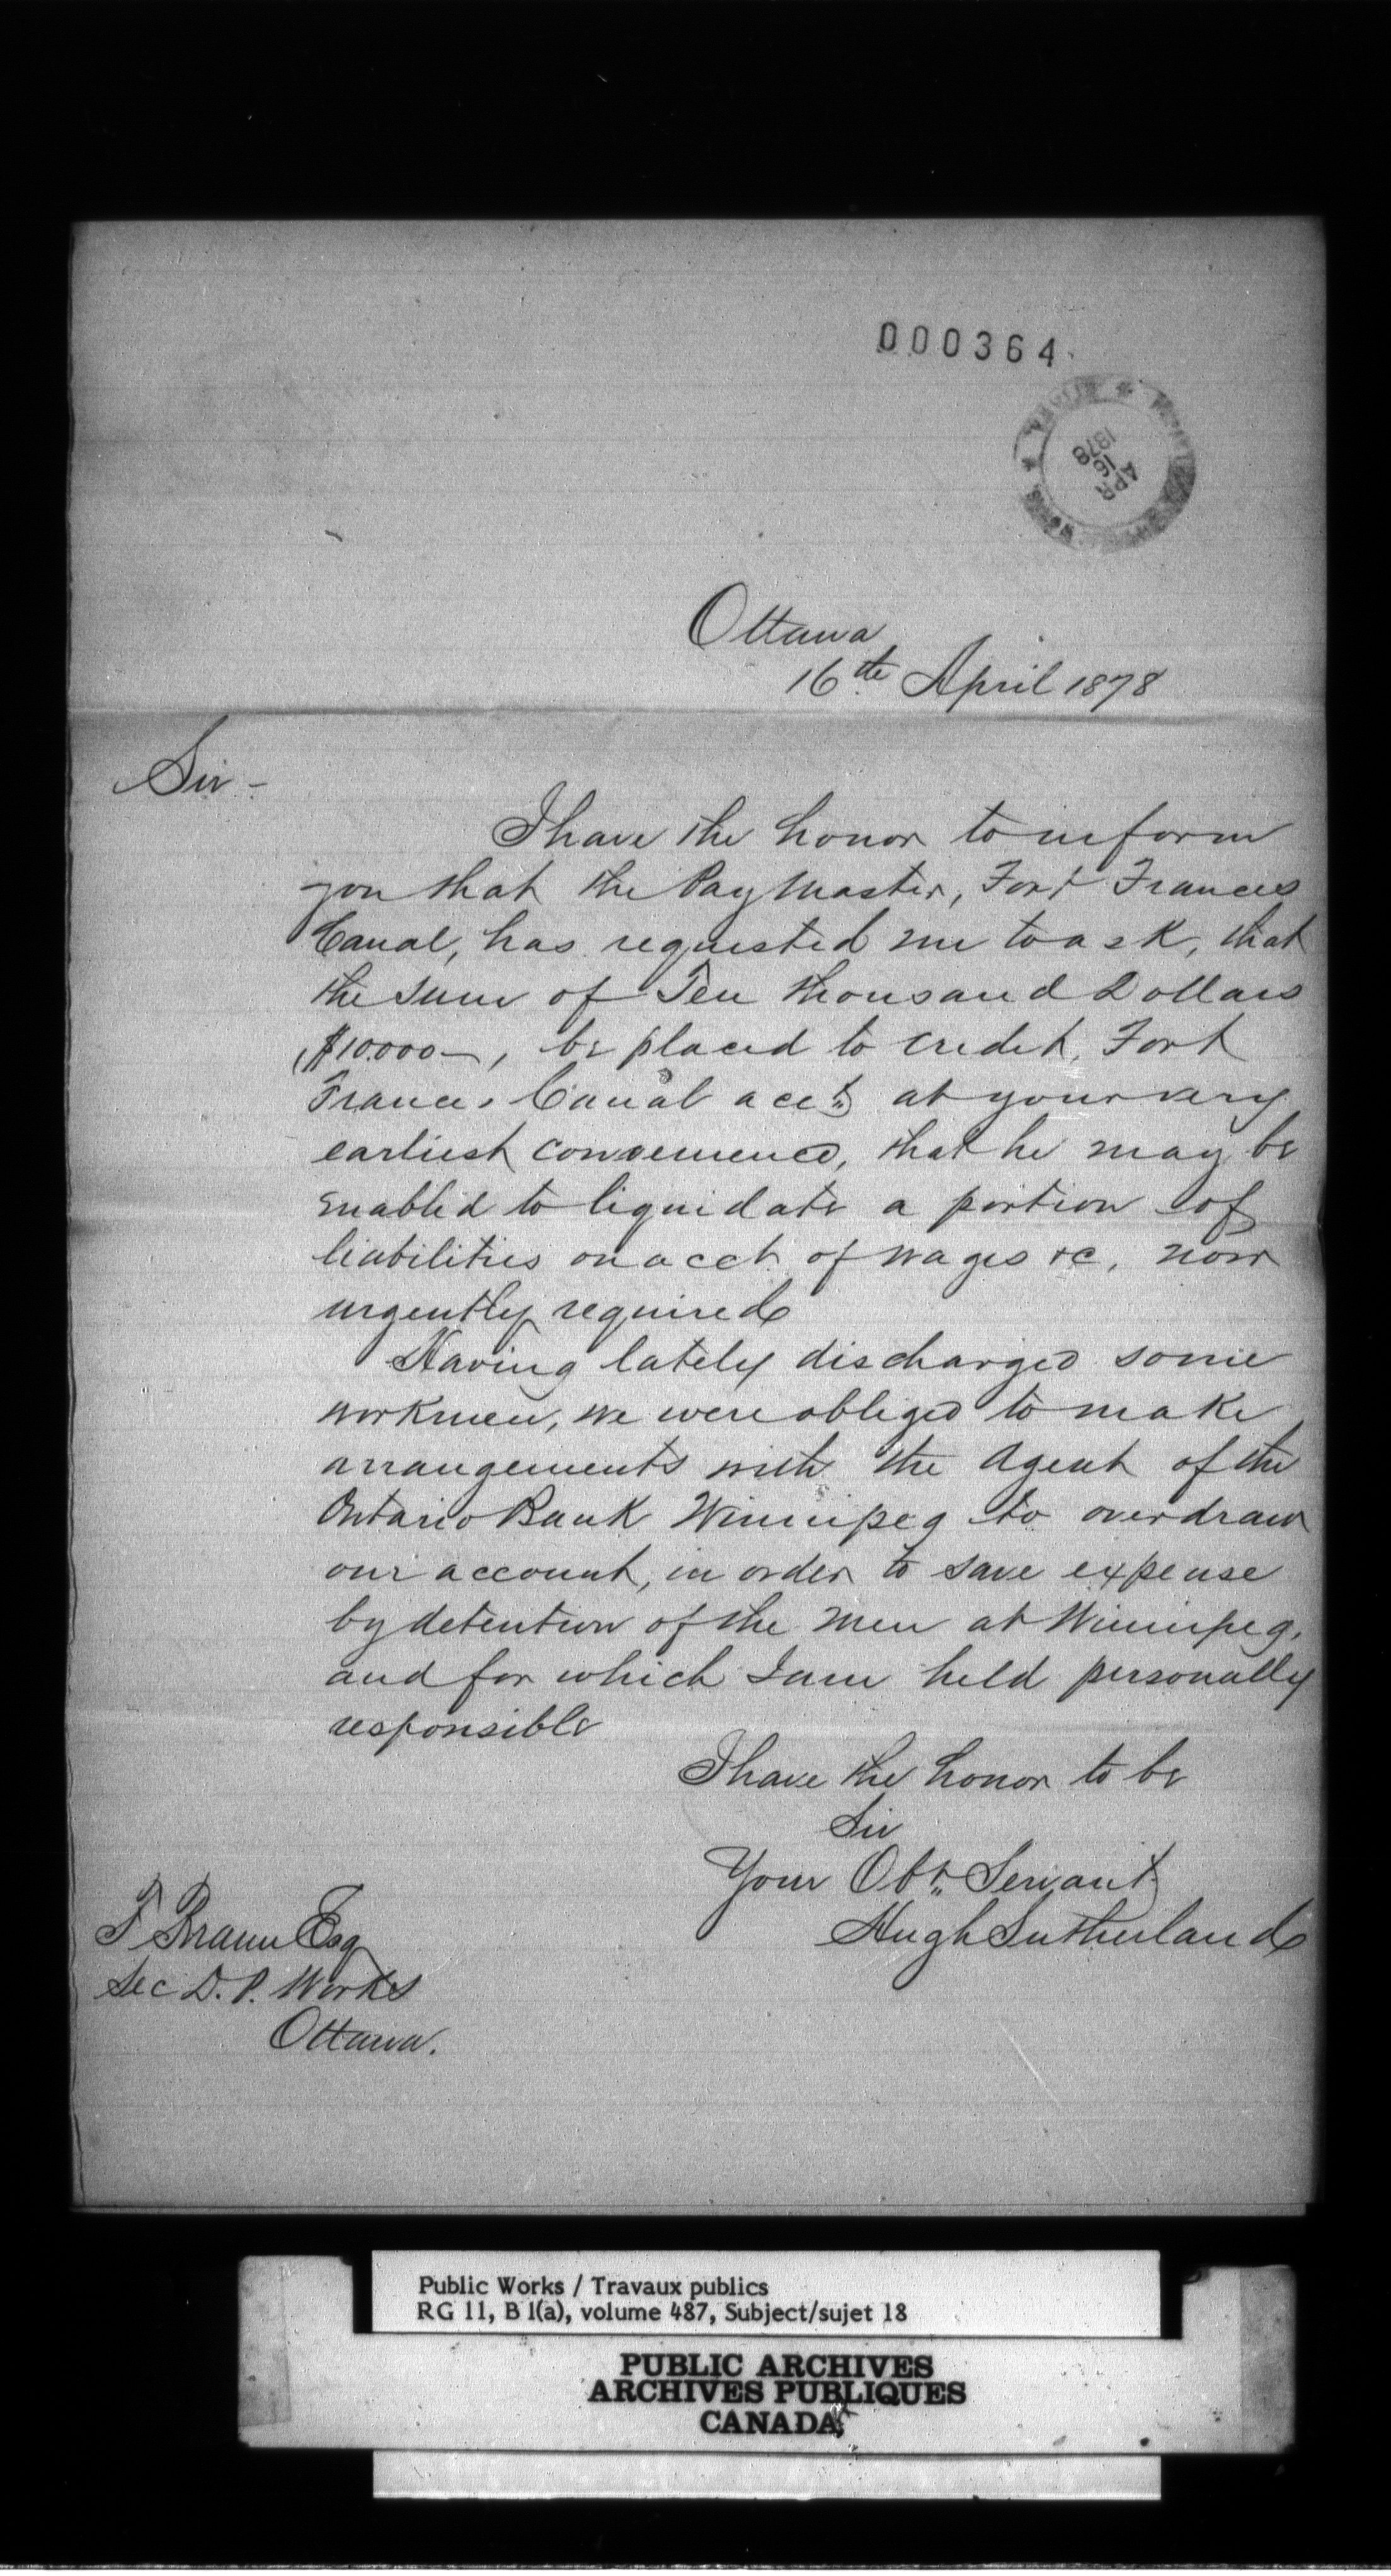 000364
APR
16
1878
Ottawa
16th April 1878
Sir -
I have the honor to inform
you that the Pay Master, Fort Frances
Canal, has requested me to ask, that
the sum of Ten thousand Dollars
$10.000—, be placed to credit, Fort
Frances Canal acct, at your very
earliest convenience, that he may be
enabled to liquidate a portion of
liabilities on acct of wages &c, now
urgently required
Having lately discharged some
workmen, we were obliged to make
arrangements with the Agent of the
Ontario Bank Winnipeg to overdraw
our account, in order to save expense
by detention of the men at Winnipeg,
and for which I am held personally
responsible
I have the honor to be
Sir
Your Obt. Servant
Hugh Sutherland
F Braun Esq
Sec D. P. Works
Ottawa.
Public Works / Travaux publics
RG 11, B 1(a), volume 487, Subject/sujet 18
PUBLIC ARCHIVES
ARCHIVES PUBLIQUES
CANADA